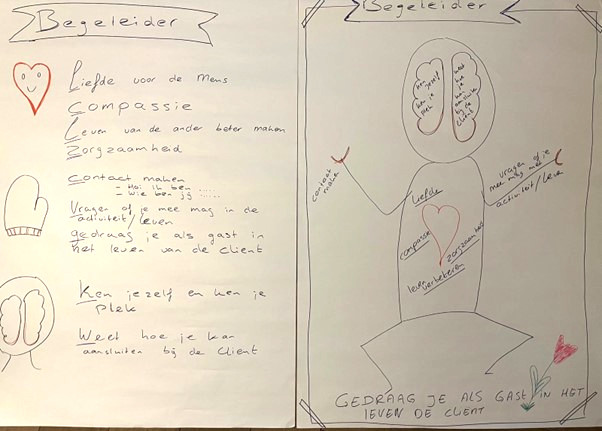 Begeleider
Liefde voor de mens
Compassie
Leven van de ander beter maken
Zorgzaamheid
Contact maken
- Hoi ik ben
- Wie ben jij ......
Vragen of je mee mag in de
activiteit/leven
gedraag je als gast in
het leven van de client
Ken jezelf en ken je
plek
Weet hoe je kan
aansluiten bij de client
Begeleider
ken
jezelf
ken je
plek
weet
hoe je
kan
aansluiten
bij de
client
contact
maken
vragen of je
mee mag met
activiteit/leven
liefde
compassie
zorgzaamheid
leven
verbeteren
GEDRAAG JE ALS GAST IN HET
LEVEN DE CLIENT